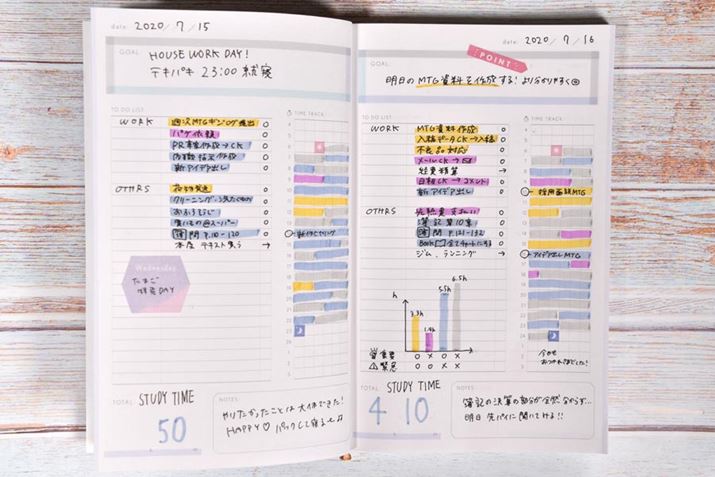 date: 2020 / 7 / 15
GOAL:
HOUSE WORK DAY!
テキパキ 23:00 就寝
TO DO LIST:
TIME TRACK:
WORK
パケ依頼
PR事案作成→CK
新アイデア出し
OTHRS
荷物発送
クリーニング
おふろそうじ
買いもの@スーパー
簿 問 P.110-120
本屋 テキスト買う →
Wednesday
たまご
特売DAY
TOTAL
STUDY TIME
50
NOTES:
やりたかったことは大体できた!
HAPPY♡ パックして寝るぞ♪
date: 2020 / 7 / 16
POINT
GOAL:
明日のMTG資料を作成する! より分かりやすく◎
TO DO LIST:
TIME TRACK:
WORK
MTG資料作成
入稿データCK→入稿
不良品対応
経費精算 →
日報CK→コメント
新アイデア出し
OTHRS
簿記第10章
簿 問 P.121-132
ジム、ランニング →
採用面談MTG
アイデア出しMTG
h
3.3h
1.4h
5.5h
6.5h
重要 ○ × ○ ×
緊急 ○ ○ × ×
今日も
おつかれさまでした!
TOTAL
STUDY TIME
4 10
NOTES:
簿記の決算の部分が全然分からず…
明日 先パイに聞いてみる!!